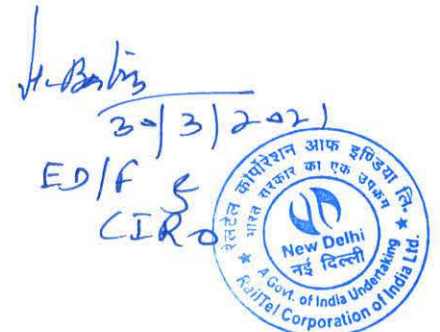 30/3/2021
ED/F &
CIRO
रेलटेल कॉर्पोरेशन ऑफ इण्डिया लि.
भारत सरकार का एक उपक्रम
New Delhi
नई दिल्ली
A Govt. of India Undertaking
RailTel Corporation of India Ltd.